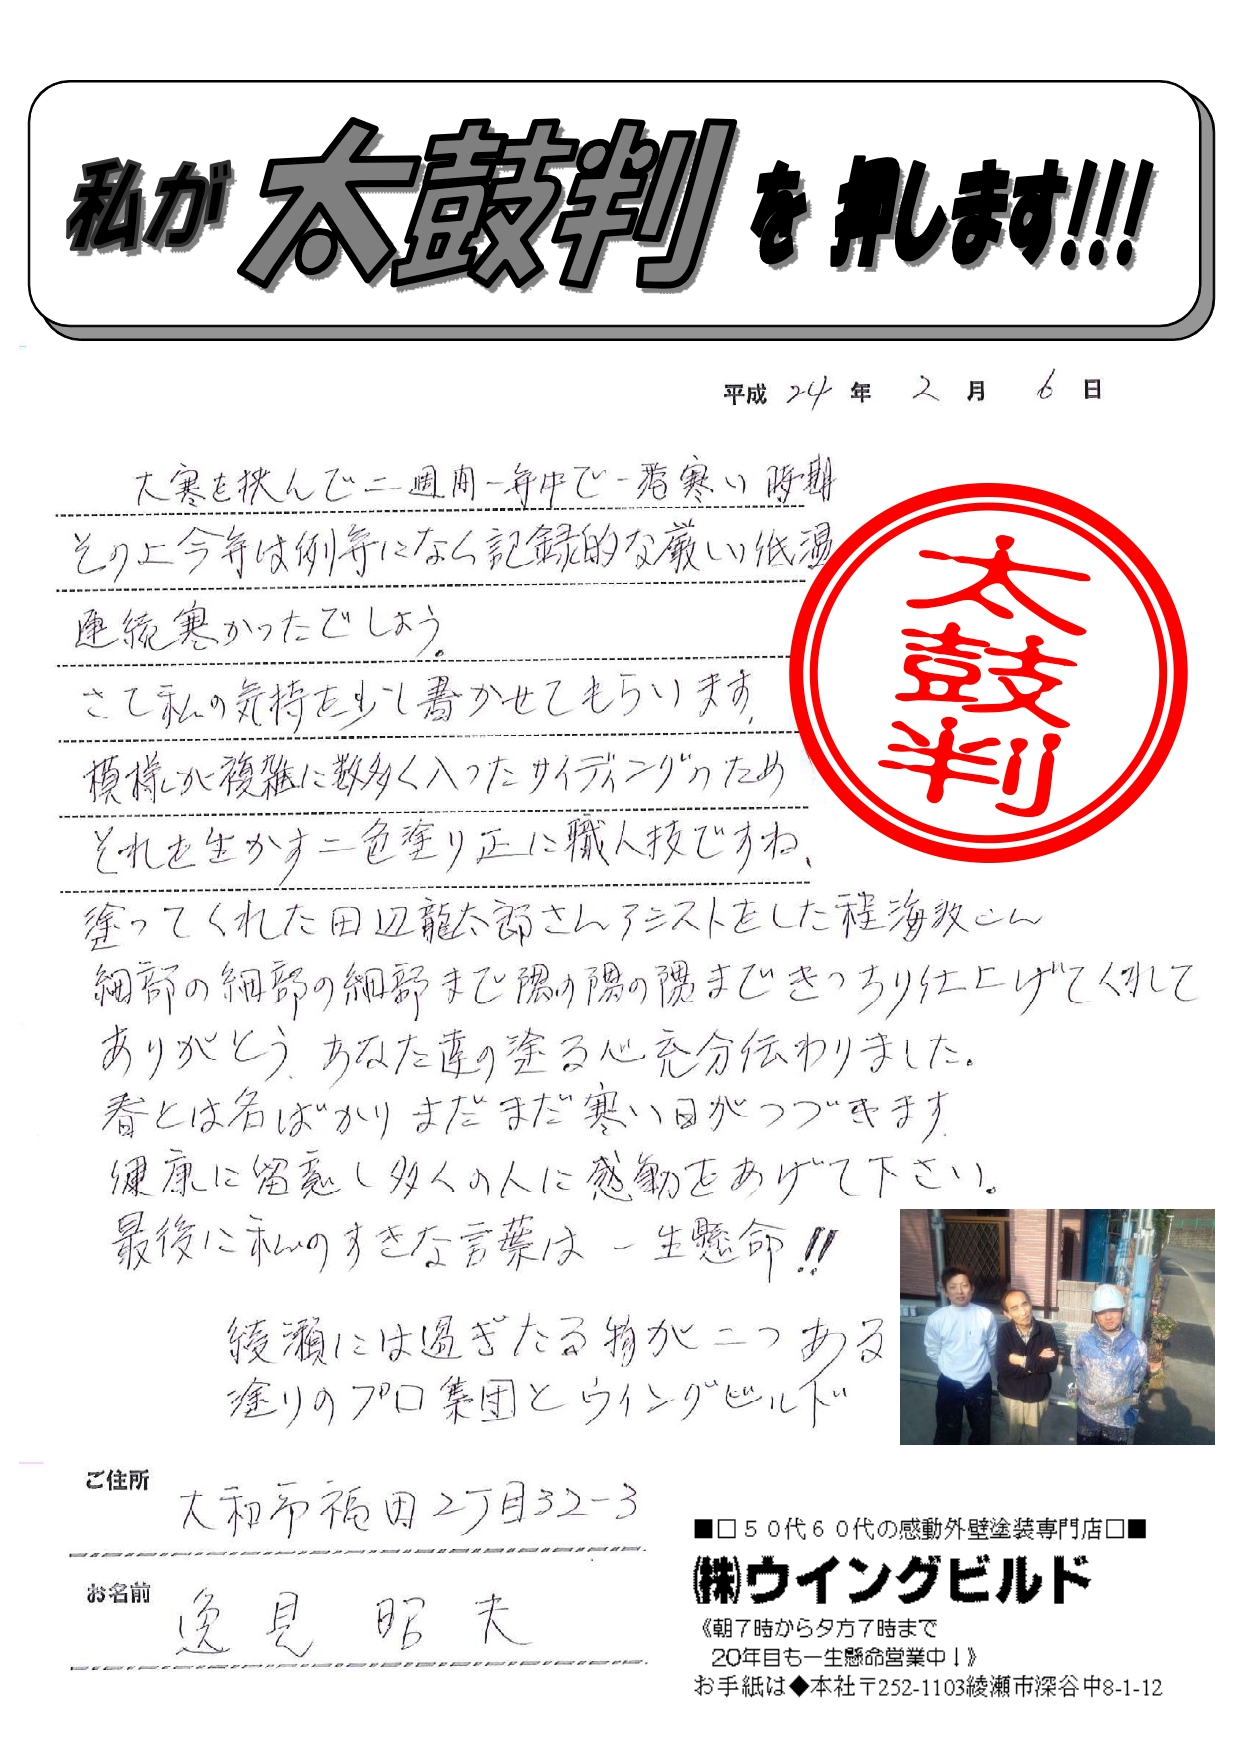 私が太鼓判を押します!!!
平成 24 年 2 月 6 日
大寒を挟んで二週間一年中で一番寒い時期
その上今年は例年になく記録的な厳しい低温
連続寒かったでしよう。
さて私の気持を少し書かせてもらいます。
模様が複雑に数多く入ったサイディングのため
それを生かす二色塗り正に職人技ですね、
太鼓判
塗ってくれた田辺龍太郎さんアシストをした程海政さん
細部の細部の細部まで隅の隅の隅まできっちり仕上げてくれて
ありがとう、あなた達の塗る心充分伝わりました。
春とは名ばかりまだまだ寒い日がつづきます
健康に留意し多くの人に感動をあげて下さい。
最後に私のすきな言葉は 一生懸命!!
綾瀬には過ぎたる物が二つある
塗りのプロ集団とウイングビルド
ご住所 大和市福田2丁目32-3
お名前 逸見 昭夫
■□50代60代の感動外壁塗装専門店□■
㈱ウイングビルド
《朝7時から夕方7時まで
20年目も一生懸命営業中!》
お手紙は◆本社〒252-1103綾瀬市深谷中8-1-12